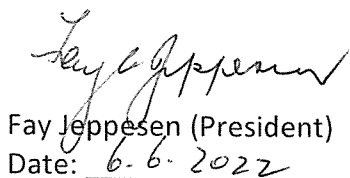 Fay Jeppesen
Fay Jeppesen (President)
Date: 6.6.2022